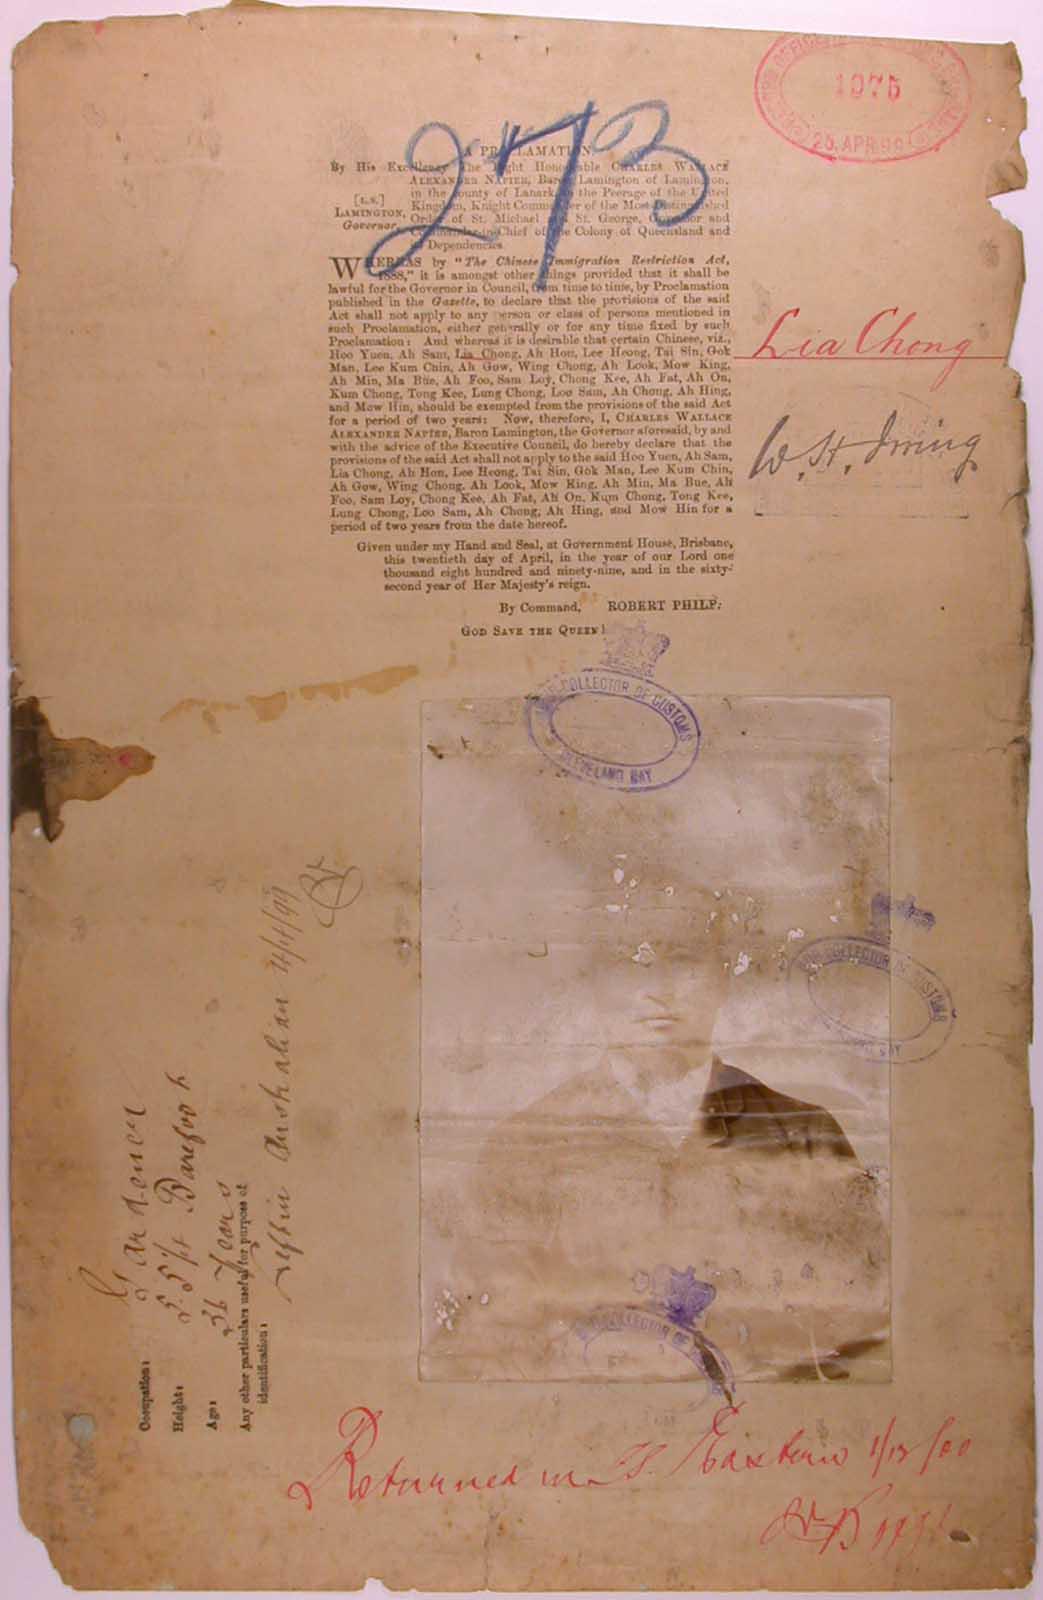 1075
25 APR 99
273
A PROCLAMATION
By His Excellency The Right Honourable CHARLES WALLACE
ALEXANDER NAPIER, Baron Lamington of Lamington,
in the county of Lanark, in the Peerage of the United
[L.S.] Kingdom, Knight Commander of the Most Distinguished
LAMINGTON, Order of St. Michael and St. George, Governor and
Governor. Commander-in-Chief of the Colony of Queensland and
its Dependencies.
WHEREAS by "The Chinese Immigration Restriction Act,
1888," it is amongst other things provided that it shall be
lawful for the Governor in Council, from time to time, by Proclamation
published in the Gazette, to declare that the provisions of the said
Act shall not apply to any person or class of persons mentioned in
such Proclamation, either generally or for any time fixed by such
Proclamation: And whereas it is desirable that certain Chinese, viz.,
Hoo Yuen, Ah Sam, Lia Chong, Ah Hon, Lee Heong, Tai Sin, Gok
Man, Lee Kum Chin, Ah Gow, Wing Chong, Ah Look, Mow King,
Ah Min, Ma Bue, Ah Foo, Sam Loy, Chong Kee, Ah Fat, Ah On,
Kum Chong, Tong Kee, Lung Chong, Loo Sam, Ah Chong, Ah Hing,
and Mow Hin, should be exempted from the provisions of the said Act
for a period of two years: Now, therefore, I, CHARLES WALLACE
ALEXANDER NAPIER, Baron Lamington, the Governor aforesaid, by and
with the advice of the Executive Council, do hereby declare that the
provisions of the said Act shall not apply to the said Hoo Yuen, Ah Sam,
Lia Chong, Ah Hon, Lee Heong, Tai Sin, Gok Man, Lee Kum Chin,
Ah Gow, Wing Chong, Ah Look, Mow King, Ah Min, Ma Bue, Ah
Foo, Sam Loy, Chong Kee, Ah Fat, Ah On, Kum Chong, Tong Kee,
Lung Chong, Loo Sam, Ah Chong, Ah Hing, and Mow Hin for a
period of two years from the date hereof.
Given under my Hand and Seal, at Government House, Brisbane,
this twentieth day of April, in the year of our Lord one
thousand eight hundred and ninety-nine, and in the sixty-
second year of Her Majesty's reign.
By Command, ROBERT PHILP.
GOD SAVE THE QUEEN!
Lia Chong
W. St. Irving
SUB-COLLECTOR OF CUSTOMS
CLEVELAND BAY
SUB-COLLECTOR OF CUSTOMS
BAY
COLLECTOR OF
Occupation: Gardener
Height: 5.5½ Barefoot
Age: 36 Years
Any other particulars useful for purpose of
identification:
Left in Australian
Returned in S. Eastern 1/12/00